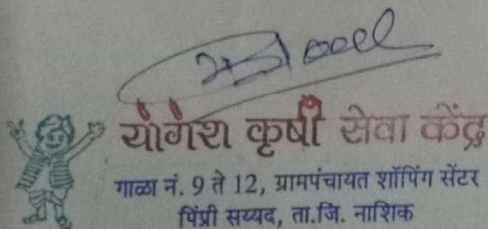 योगेश कृषी सेवा केंद्र
गाळा नं. 9 ते 12, ग्रामपंचायत शॉपिंग सेंटर
पिंप्री सय्यद, ता.जि. नाशिक